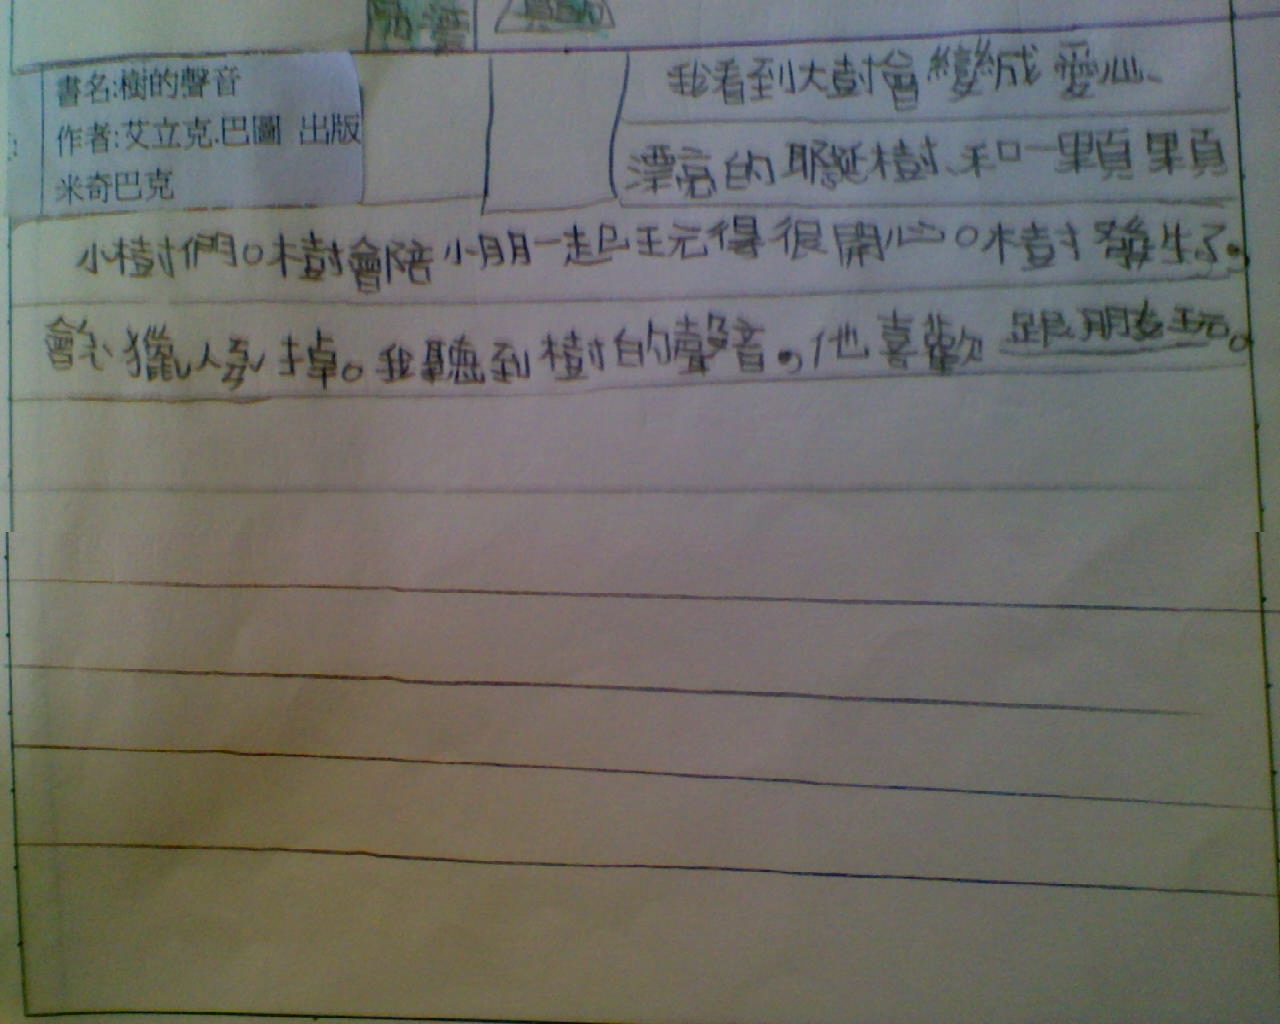 書名:樹的聲音
作者:艾立克.巴圖 出版
米奇巴克
我看到大樹會變成愛心、
漂亮的耶誕樹、和一顆顆
小樹們。樹會陪小朋一起玩得很開心。樹發生了,
會 獵人 掉。我聽到樹的聲音,他喜歡跟朋友玩。